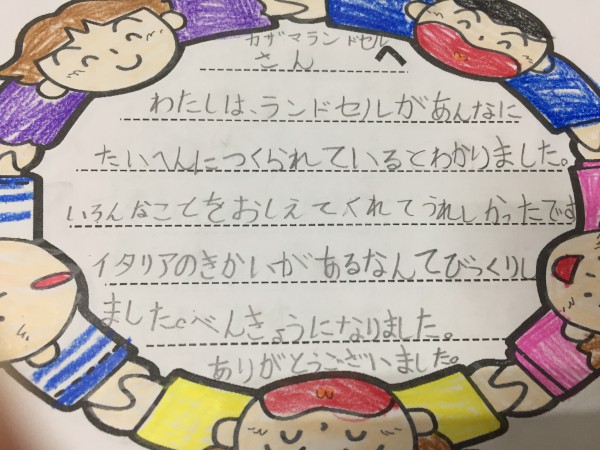 カザマランドセル
さん へ
わたしは、ランドセルが あんなに
たいへんにつくられているとわかりました。
いろんなことをおしえてくれてうれしかったです
イタリアのきかいがあるなんてびっくりし
ました。べんきょうになりました。
ありがとうございました。